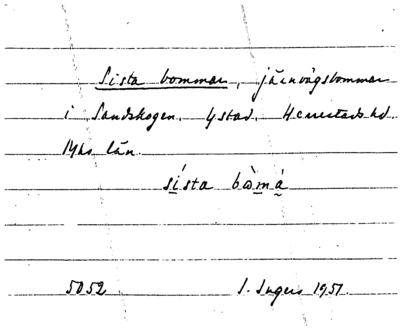 Sista bommar, järnvägsbommar
i Sandskogen. Ystad. Herrestads hd.
Mhs län.
sísta bòmá
5052 I. Ingers 1951.